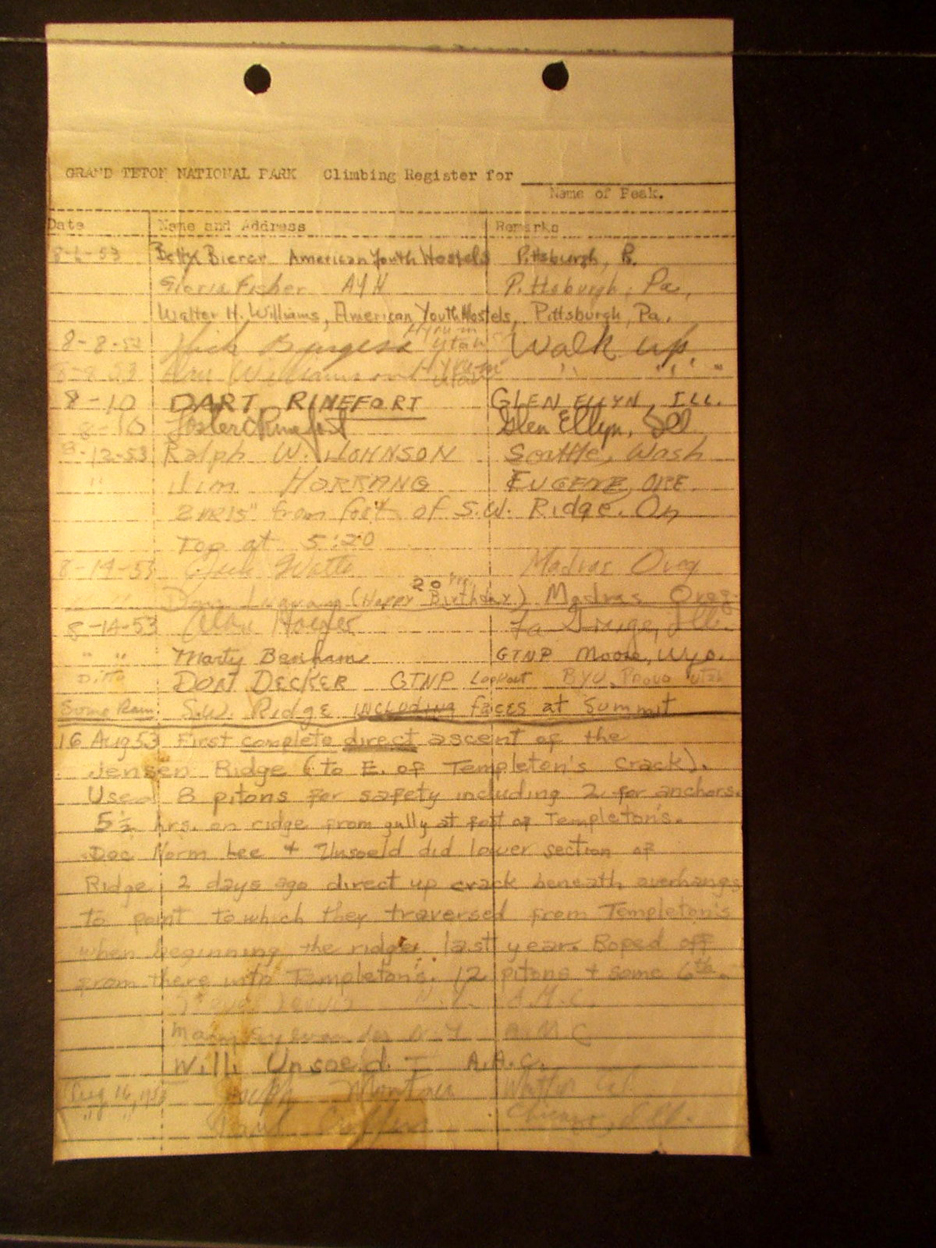 GRAND TETON NATIONAL PARK Climbing Register for
Name of Peak.
Date Name and Address Remarks
8-6-53 Betty Bierer American Youth Hostels Pittsburgh, P.
Gloria Fisher AYH Pittsburgh, Pa,
Walter H. Williams, American Youth Hostels, Pittsburgh, Pa.
8-8-53 Burgess Hyrum Utah Walk up,
8-8-53 Williams Hyrum Utah " " "
8-10 DART RINEFORT GLEN ELLYN, ILL.
8-10 Foster Rinefort Glen Ellyn, Ill
8-12-53 Ralph W. JOHNSON Seattle, Wash
" Jim EUGENE, ORE.
2HR15" from foot of S.W. Ridge. On
Top at 5:20
8-14-53 Madras Oreg
" " (Happy 20th Birthday) Madras Oreg.
8-14-53 La Grange, Ill.
" " Marty Benham GTNP Moose, Wyo.
Ditto DON DECKER GTNP Lookout BYU, Provo Utah
Some Rain S.W. Ridge including faces at Summit
16 Aug 53 First complete direct ascent of the
Jensen Ridge (to E. of Templeton's Crack).
Used 8 pitons for safety including 2 for anchors.
5½ hrs. on ridge from gully at foot of Templeton's.
Doc Norm Lee + Unsoeld did lower section of
Ridge 2 days ago direct up crack beneath overhangs
to point to which they traversed from Templeton's
when beginning the ridge last year. Roped off
from there into Templeton's. 12 pitons + some 6th.
A.M.C.
Mary Sylvander N.Y. A.M.C
Willi Unsoeld - A.A.C.
Aug 16, 1953 Joseph
" " " Paul Chicago, Ill.